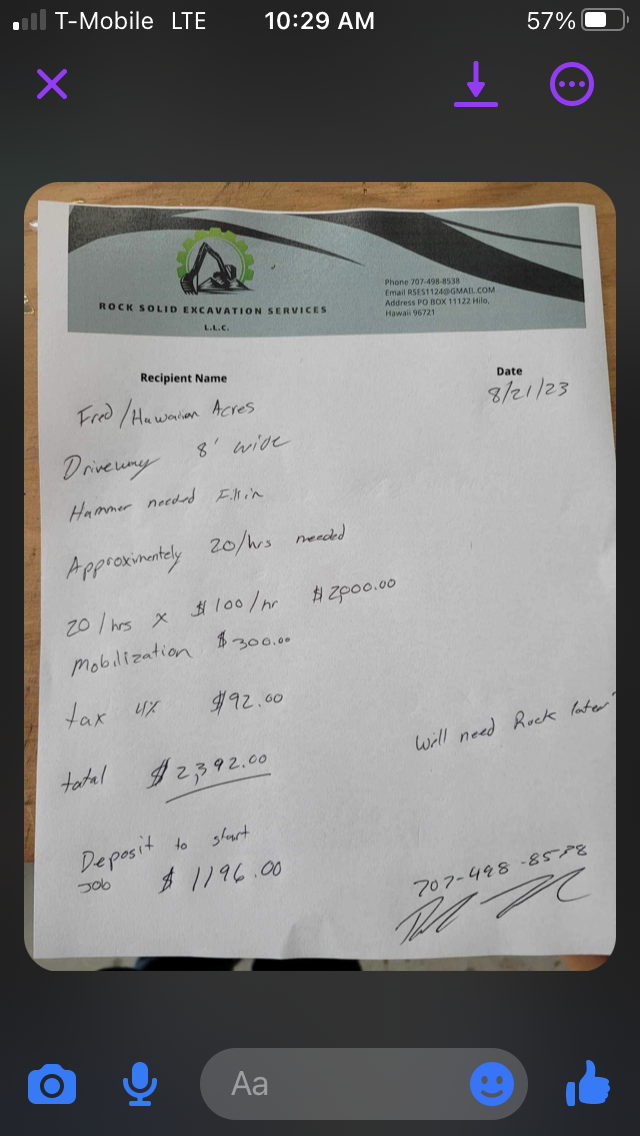 T-Mobile LTE 10:29 AM 57%
ROCK SOLID EXCAVATION SERVICES
L.L.C.
Phone 707-498-8538
Email RSES1124@GMAIL.COM
Address PO BOX 11122 Hilo,
Hawaii 96721
Recipient Name
Date
Fred/Hawaiian Acres
8/21/23
Driveway 8' wide
Hammer needed Fill in
Approximently 20/hrs needed
20/hrs x $100/hr $2,000.00
Mobilization $300.00
tax 4% $92.00
Will need Rock later
total $2,392.00
Deposit to start
Job $1196.00
707-498-8538
Aa